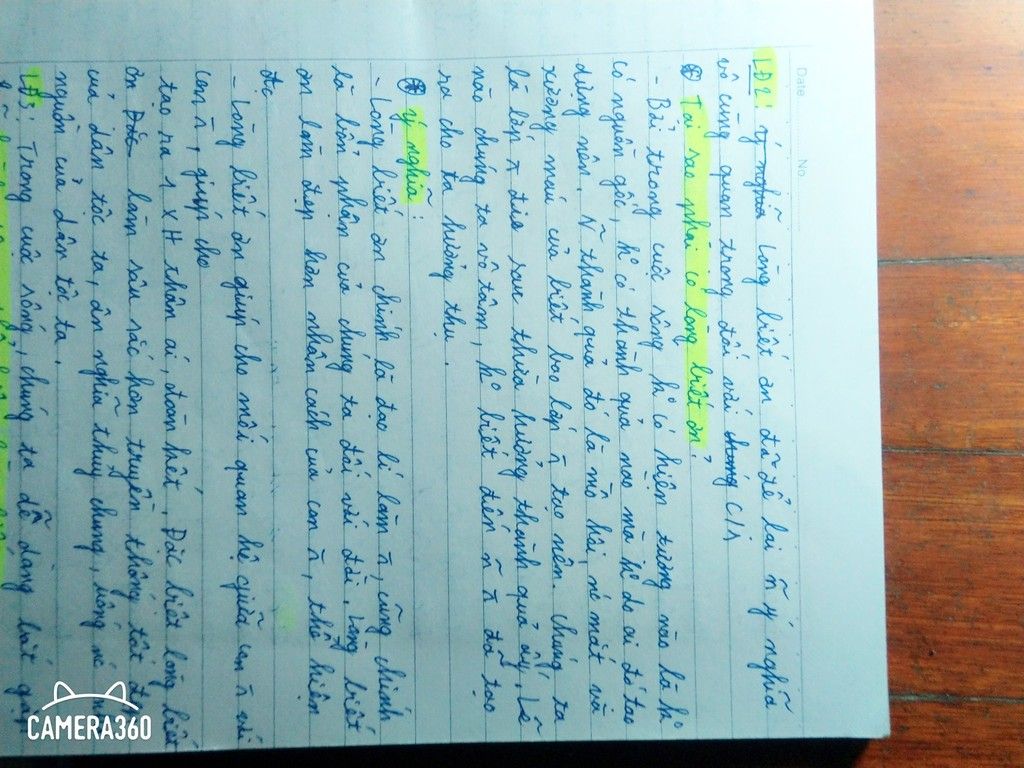 Date No.
LĐ2: ý nghĩa Lòng biết ơn đã để lại ñ ý nghĩa
vô cùng quan trọng đối với chúng C/S
* Tại sao phải có lòng biết ơn?
- Bởi trong cuộc sống ko có hiện tượng nào là ko
có nguồn gốc, ko có thành quả nào mà ko do ai đó tạo
dựng nên. ñ thành quả đó là mồ hôi, nó mất và
xương máu của biết bao lớp ñ tạo nên. Chúng ta
là lớp ñ đi sau thừa hưởng thành quả ấy. Lẽ
nào chúng ta vô tâm, ko biết đến ñ ñ đã tạo
ra cho ta hưởng thụ.
* ý nghĩa:
- Lòng biết ơn chính là đạo lí làm ñ, cũng chính
là bổn phận của chúng ta đối với đời. Lòng biết
ơn làm đẹp hơn nhân cách của con ñ, thể hiện
- Lòng biết ơn giúp cho mối quan hệ giữa con ñ với
con ñ, giúp cho
tạo ra 1 XH thân ái, đoàn kết. Đặc biệt lòng biết
ơn làm sâu sắc hơn truyền thống tốt
của dân tộc ta, ân nghĩa thuỷ chung, uống
nguồn của dân tộc ta.
LĐ3: Trong cuộc sống, chúng ta dễ dàng bắt gặp
CAMERA360